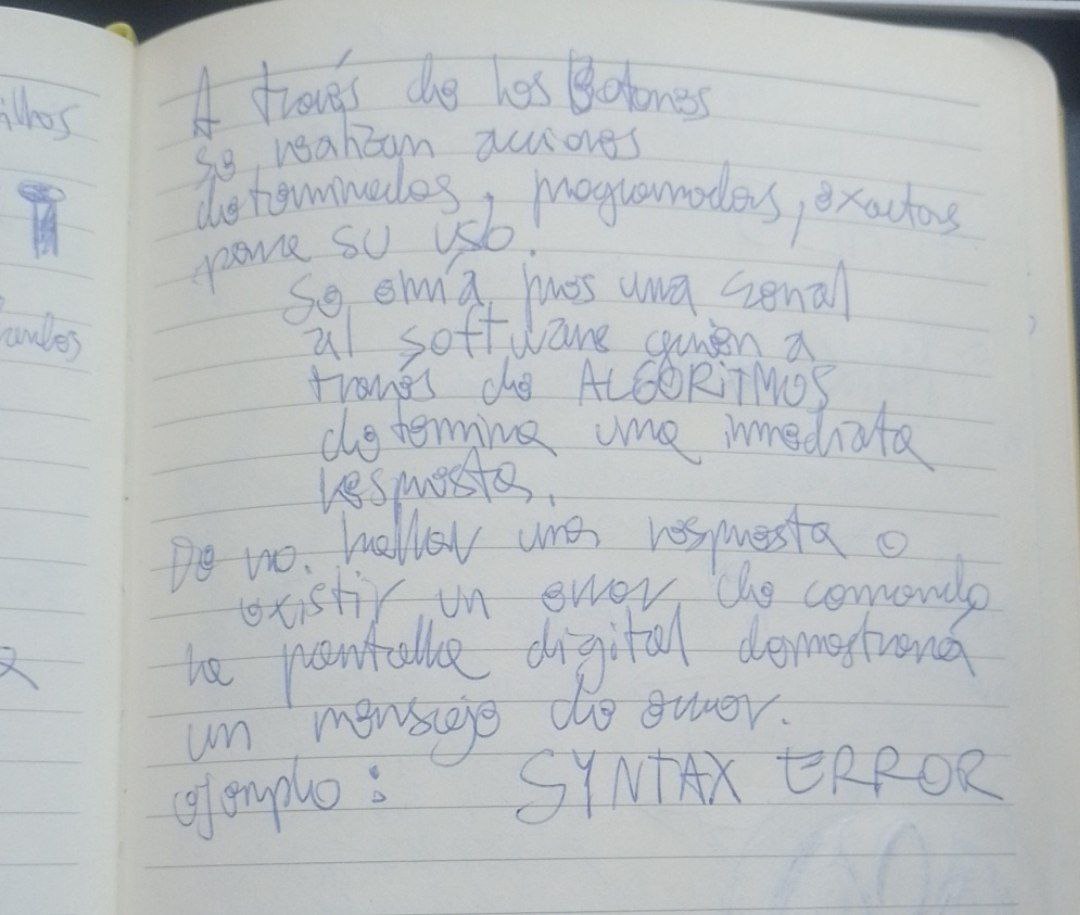 ilhos
A través de los Botones
se realizan acciones
determinadas, programadas, exactas
para su uso.
Se envía pues una señal
al software quién a
través de ALGORITMOS
determina una inmediata
respuesta.
De no hallar una respuesta o
existir un error de comando
la pantalla digital demostrará
un mensaje de error.
ejemplo: SYNTAX ERROR